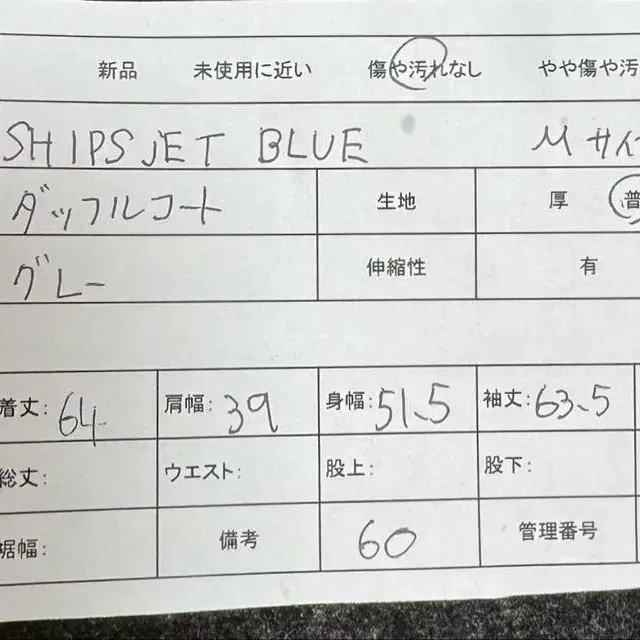 新品 未使用に近い 傷や汚れなし やや傷や汚
SHIPS JET BLUE Mサイ
ダッフルコート 生地 厚 普
グレー 伸縮性 有
着丈: 64 肩幅: 39 身幅: 51.5 袖丈: 63.5
総丈: ウエスト: 股上: 股下:
裾幅: 備考 60 管理番号